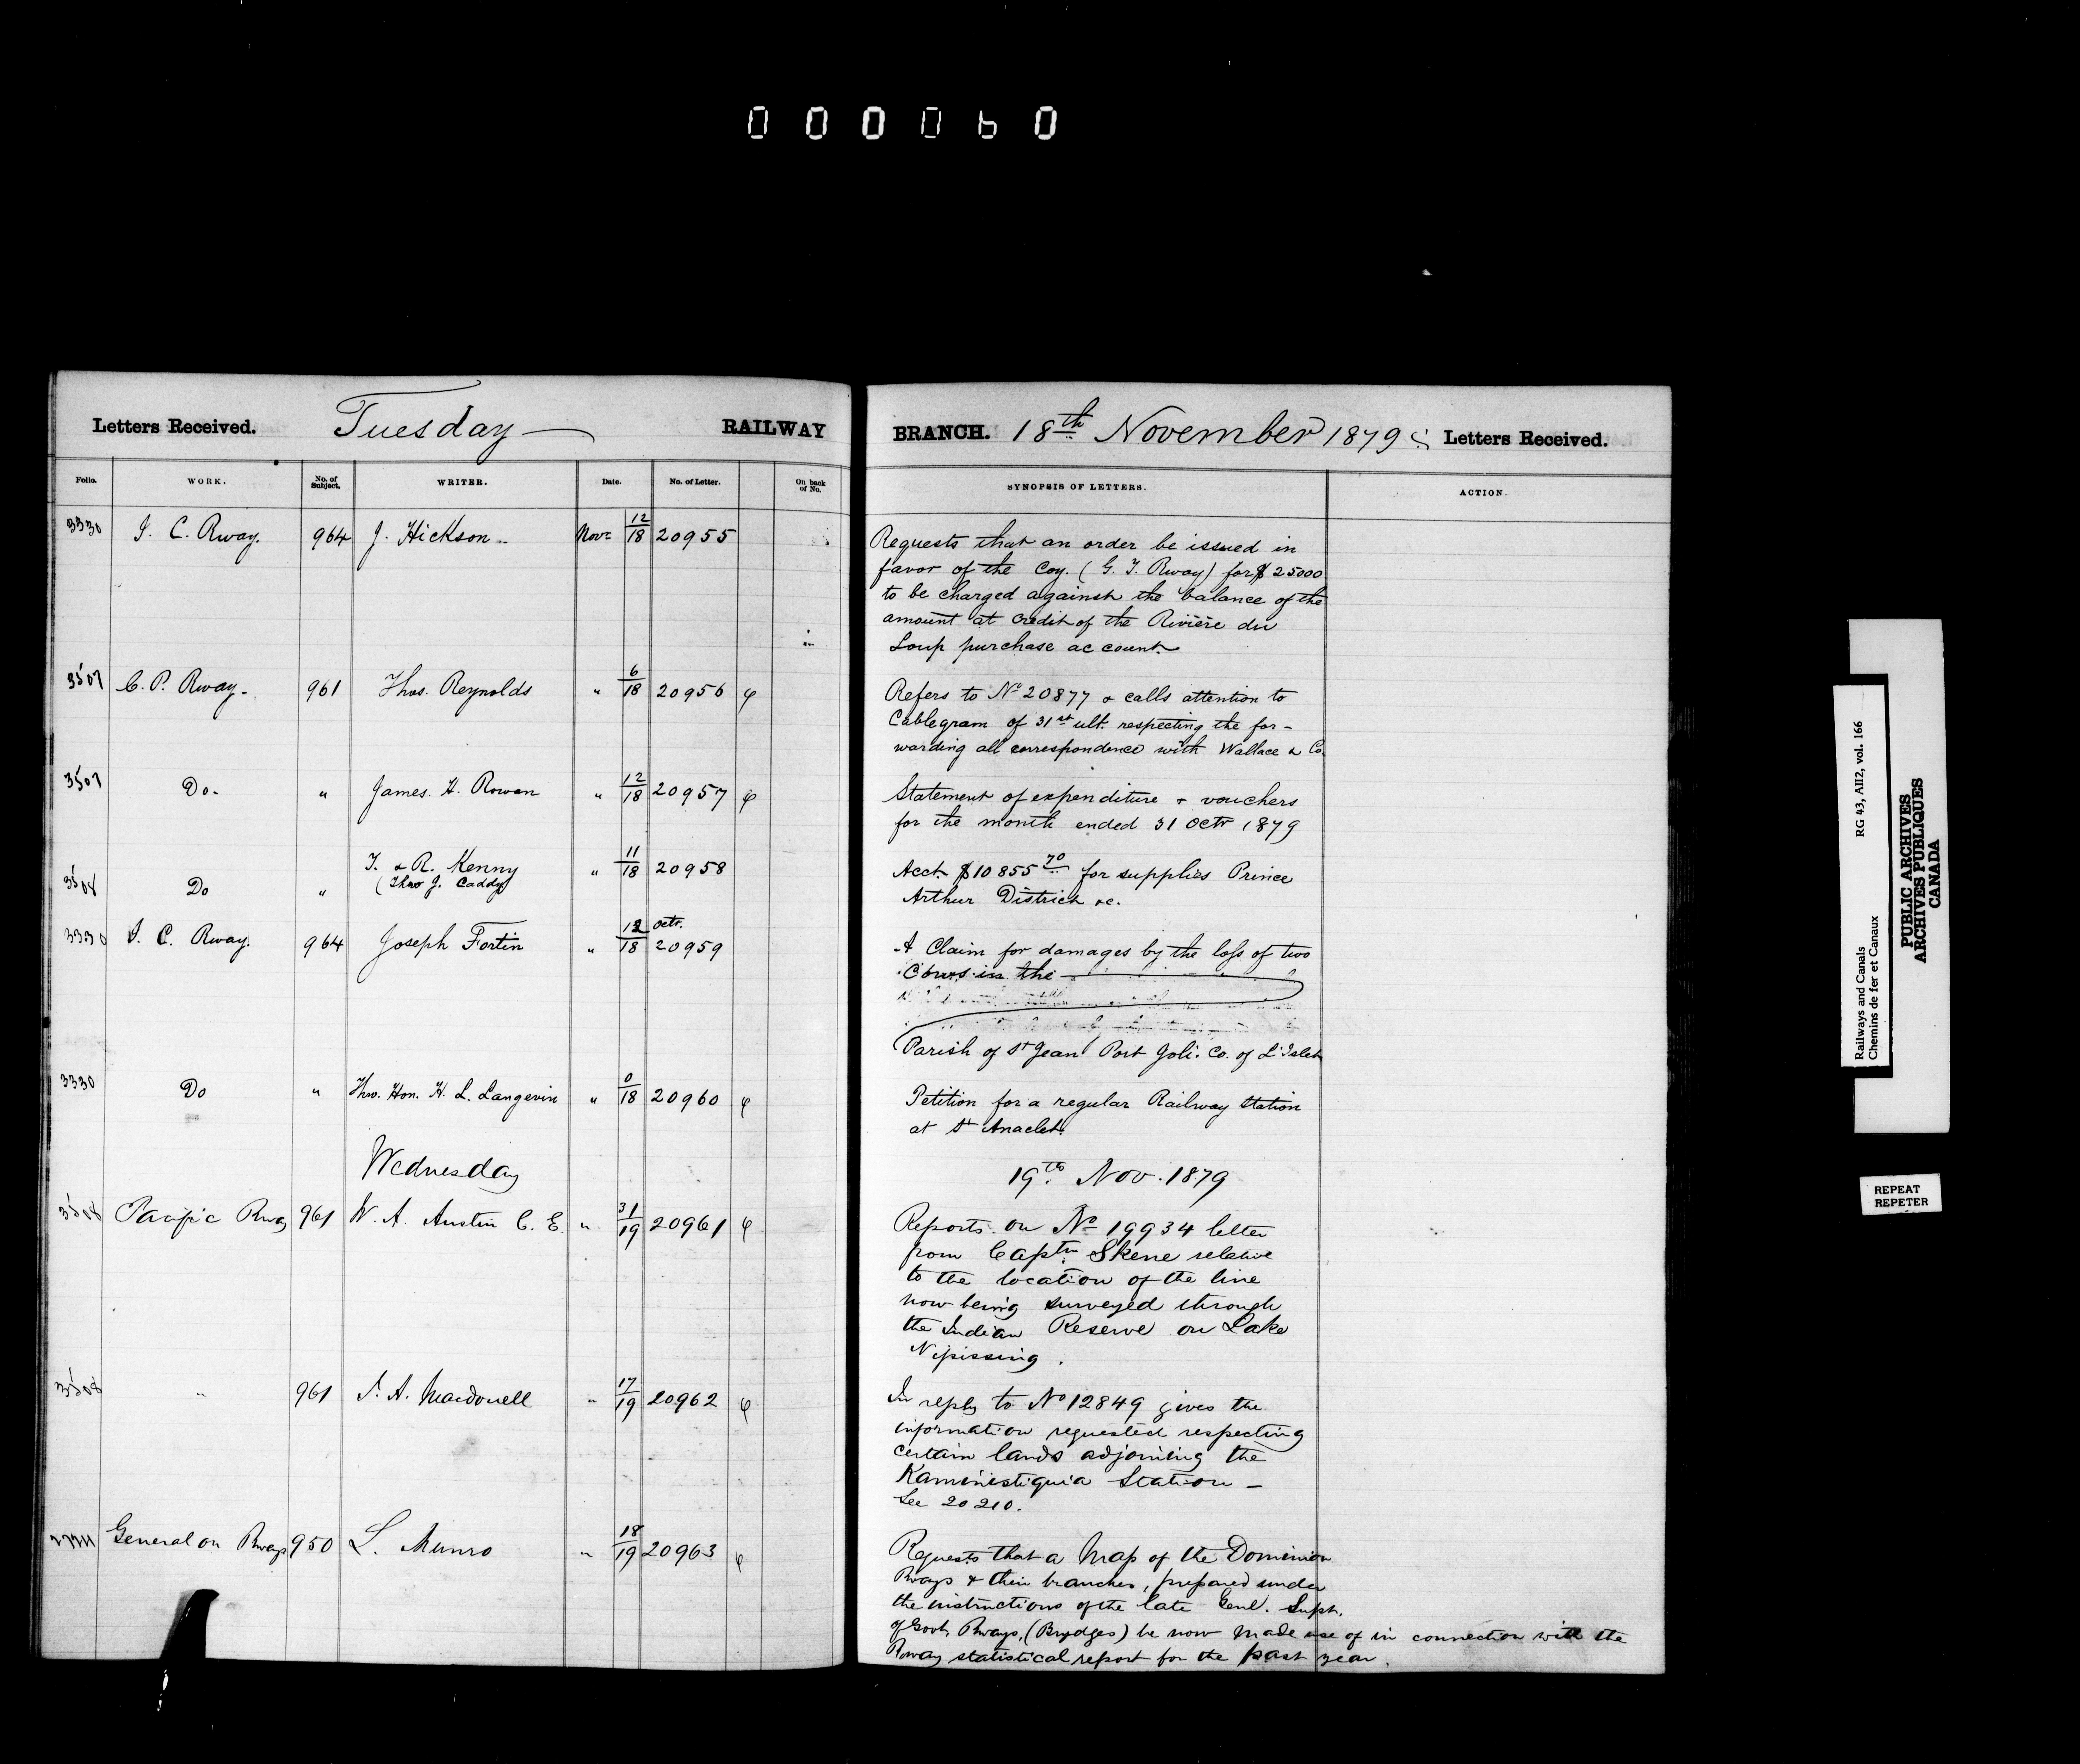 000060
Letters Received. Tuesday RAILWAY
BRANCH. 18th November 1879 Letters Received.
Folio. WORK. No. of Subject. WRITER. Date. No. of Letter. On back of No.
SYNOPSIS OF LETTERS. ACTION.
3330 I. C. Rway. 964 J. Hickson Novr 12/18 20955
Requests that an order be issued in
favor of the Coy. (G. T. Rway) for $25000
to be charged against the balance of the
amount at credit of the Rivière du
Loup purchase account.
3507 C. P. Rway. 961 Thos. Reynolds " 6/18 20956 φ
Refers to No 20877 & calls attention to
Cablegram of 31st ult. respecting the for-
warding all correspondence with Wallace & Co.
3507 Do. " James. H. Rowan " 12/18 20957 φ
Statement of expenditure & vouchers
for the month ended 31 Octr 1879
3508 Do " T. & R. Kenny " 11/18 20958
(Thro J. Caddy)
Acct. $10855 70 for supplies Prince
Arthur District &c.
3330 I. C. Rway. 964 Joseph Fortin " 12/18 Octr. 20959
A Claim for damages by the loss of two
Cows in the
Parish of St Jean Port Joli. Co. of L'Islet
3330 Do " Thro. Hon. H. L. Langevin " 0/18 20960 φ
Petition for a regular Railway Station
at St Anaclet.
Wednesday
19th Nov. 1879
3508 Pacific Rway 961 W. A. Austin C. E. " 31/19 20961 φ
Reports on No 19934 letter
from Captn. Skene relative
to the location of the line
now being surveyed through
the Indian Reserve on Lake
Nipissing.
3508 " 961 A. Macdonell " 17/19 20962 φ
In reply to No 12849 gives the
information requested respecting
certain lands adjoining the
Kaministiquia Station -
See 20210.
General on Rways 950 L. Munro " 18/19 20963 φ
Requests that a Map of the Dominion
Rways & their branches, prepared under
the instructions of the late Genl. Supt.
of Govt. Rways, (Brydges) be now made use of in connection with the
Rway statistical report for the past year.
Railways and Canals RG 43, AII2, vol. 166
Chemins de fer et Canaux
PUBLIC ARCHIVES
ARCHIVES PUBLIQUES
CANADA
REPEAT
REPETER